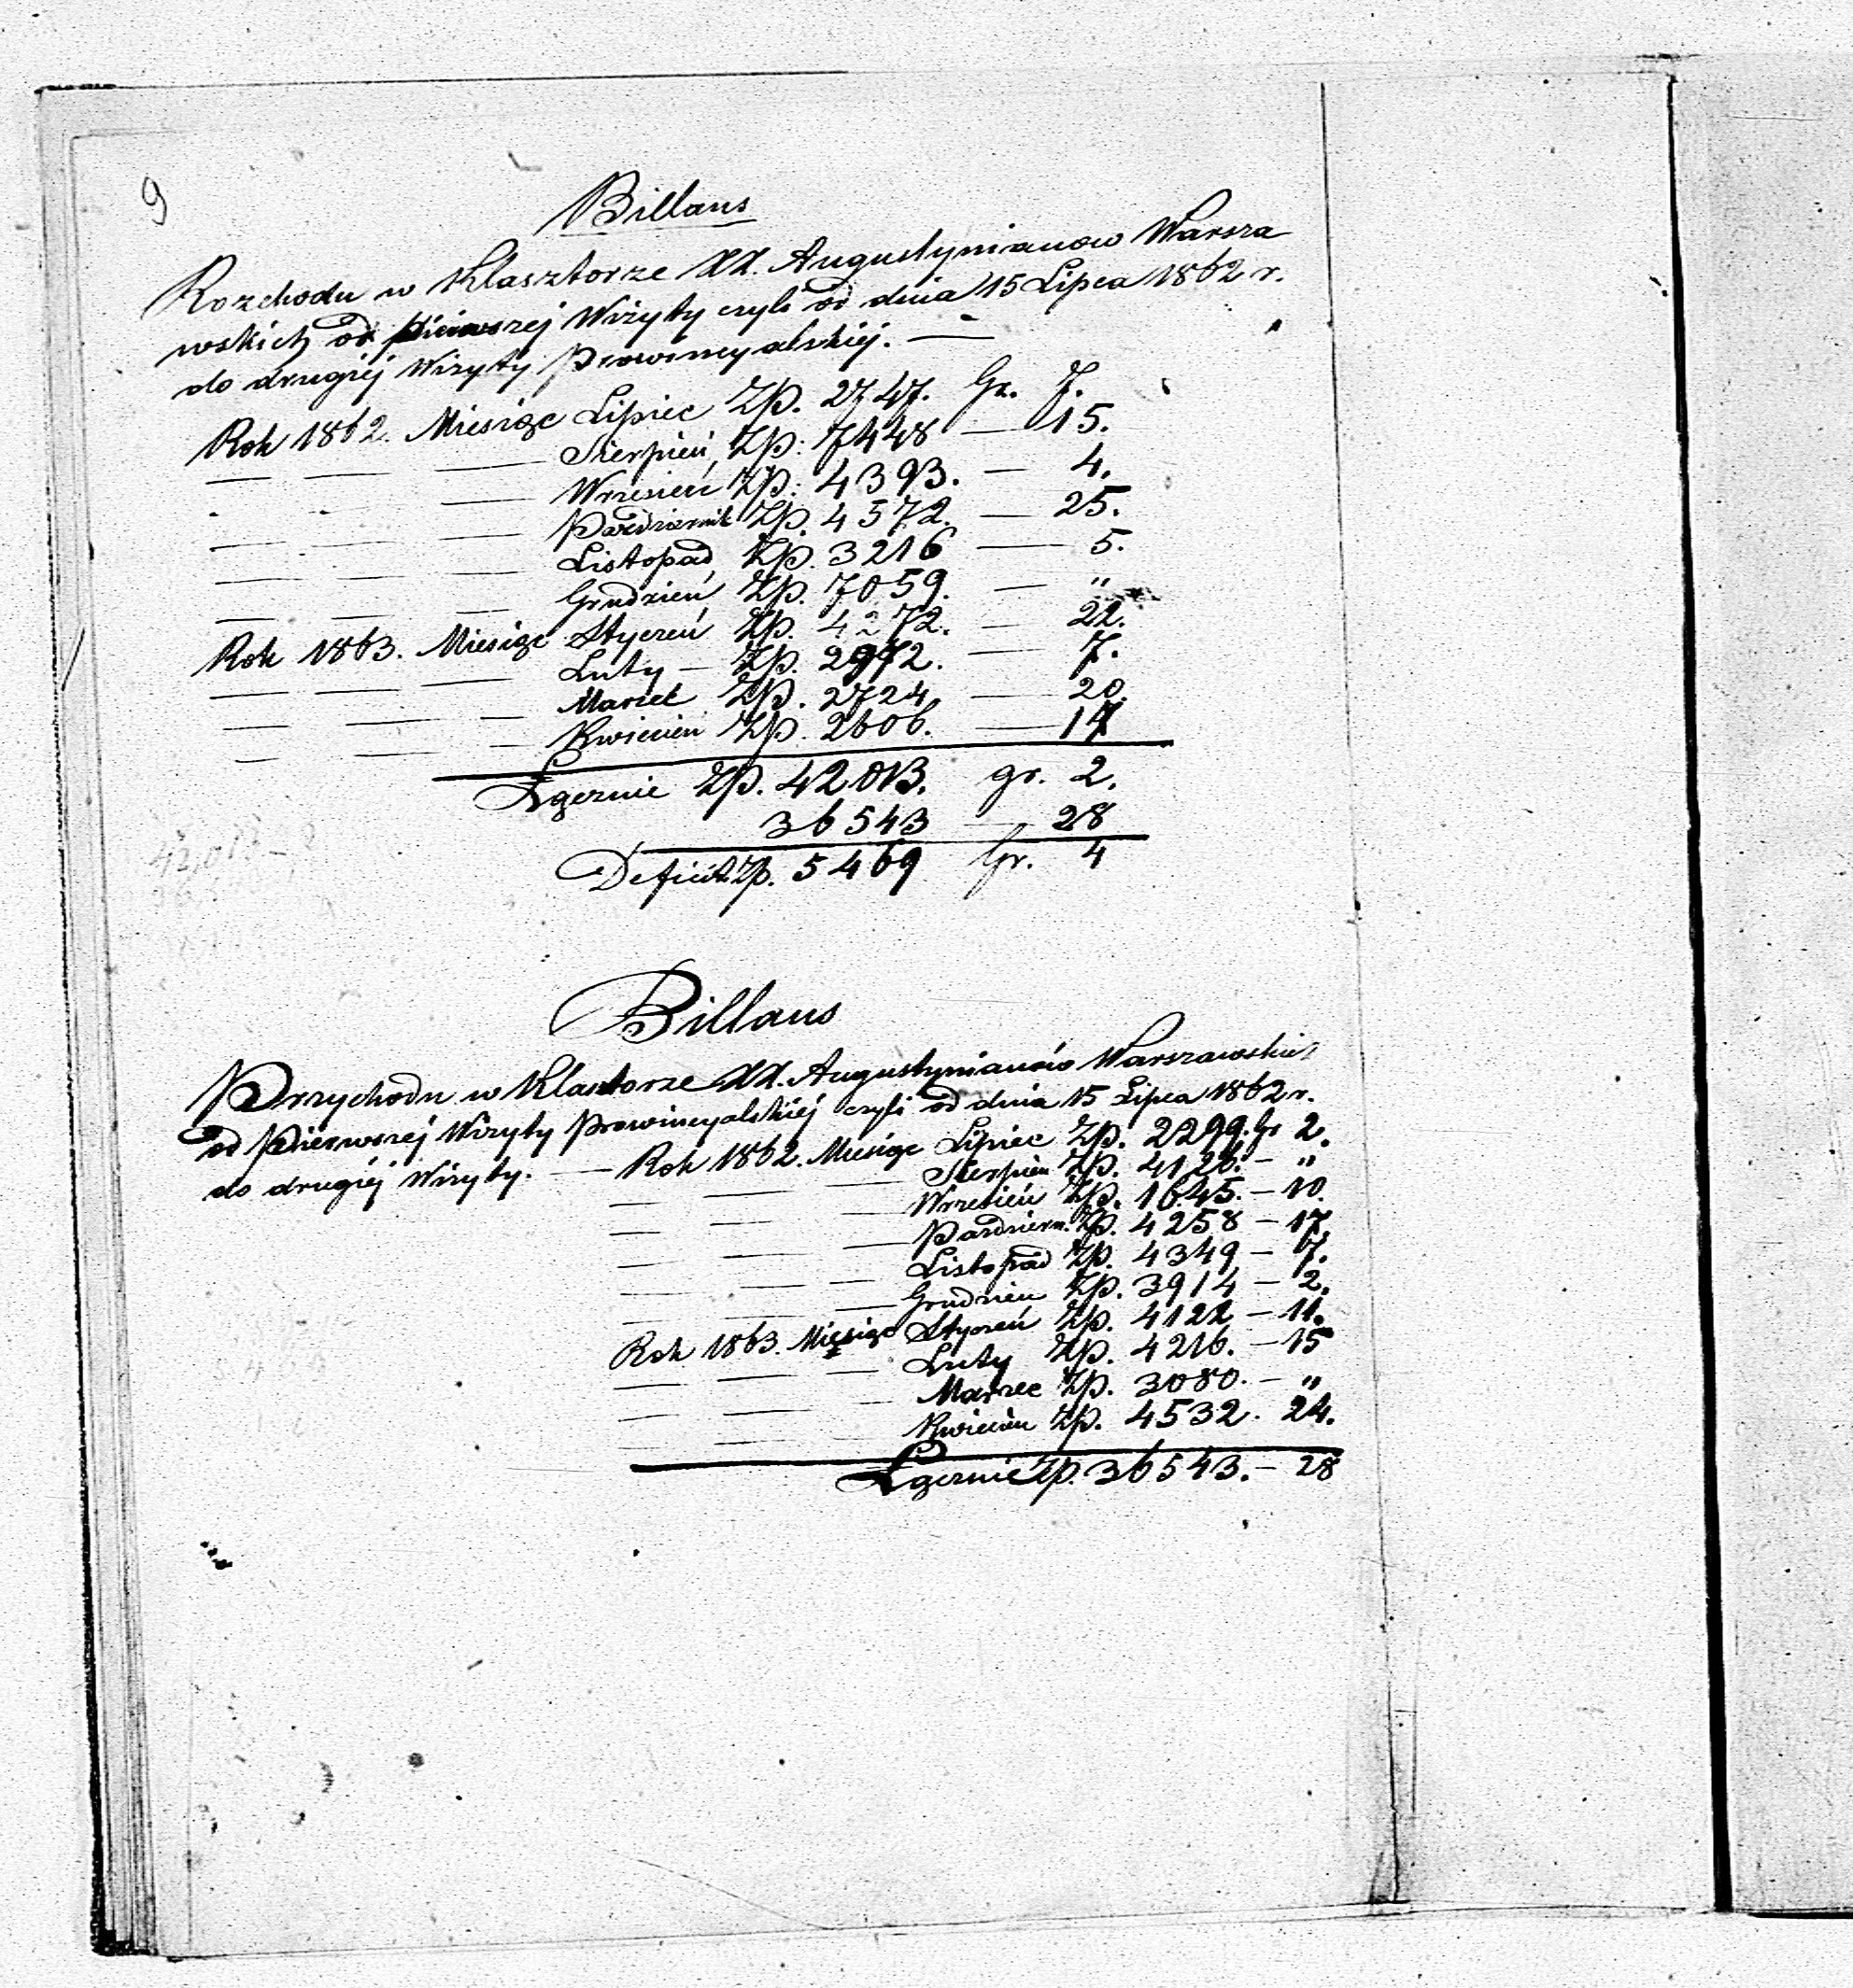 9
Billans
Rozchodu w Klasztorze XX. Augustynianow Warsza
wskich od pierwszej Wizyty czyli od dnia 15 Lipca 1862 r.
do drugiéj Wizyty Prowincyalskiéj. —
Rok 1862. Miesiąc Lipiec Złp. 2747. Gr. 7.
— — — Sierpień, Złp: 7448 — 15.
— — Wrzesień Złp: 4393. — 4.
— — — Pazdziernik Złp. 4572. — 25.
— — — Listopad, Złp. 3216 — 5.
— — — Grudzień Złp. 7059. — "
Rok 1863. Miesiąc Styczeń Złp. 4272. — 22.
— — — Luty — Złp. 2972. — 7.
— — — Marzec Złp. 2724. — 20.
— — — Kwiecień Złp. 2606. — 17
Łącznie Złp. 42013. gr. 2.
36543 — 28
Deficit Złp. 5469 Gr. 4
Billans
Przychodu w Klasztorze XX. Augustynianów Warszawskich
od pierwszej Wizyty Prowincyalskiéj czyli od dnia 15 Lipca 1862 r.
do drugiéj Wizyty. — Rok 1862. Miesiąc Lipiec Złp. 2299. Gr 2.
— — — Sierpien Złp. 4126. — "
— — — Wrzesień Złp. 1645. — 10.
— — — Pazdziern. Złp. 4258 — 17.
— — — Listopad Złp. 4349 — 7.
— — — Grudzien Złp. 3914 — 2.
Rok 1863. Miesiąc Styczeń Złp. 4122 — 11.
— — — Luty Złp. 4216. — 15
— — — Marzec Złp. 3080. — "
— — — Kwiecien Złp. 4532. 24.
Łącznie Złp. 36543. — 28